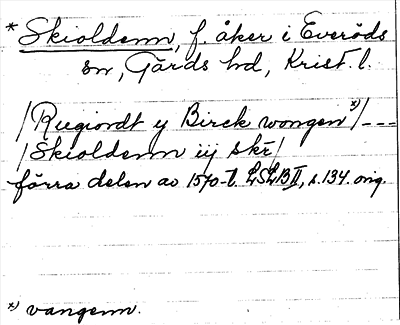 * Skioldenn, f. åker i Everöds
sn, Gärds hd, Krist. l.
/Rugiordt y Birck wongen *)/ ---
/Skioldenn iij skr/
förra delen av 1570-t. LSLB II, s. 134. orig.
*) vangenn.